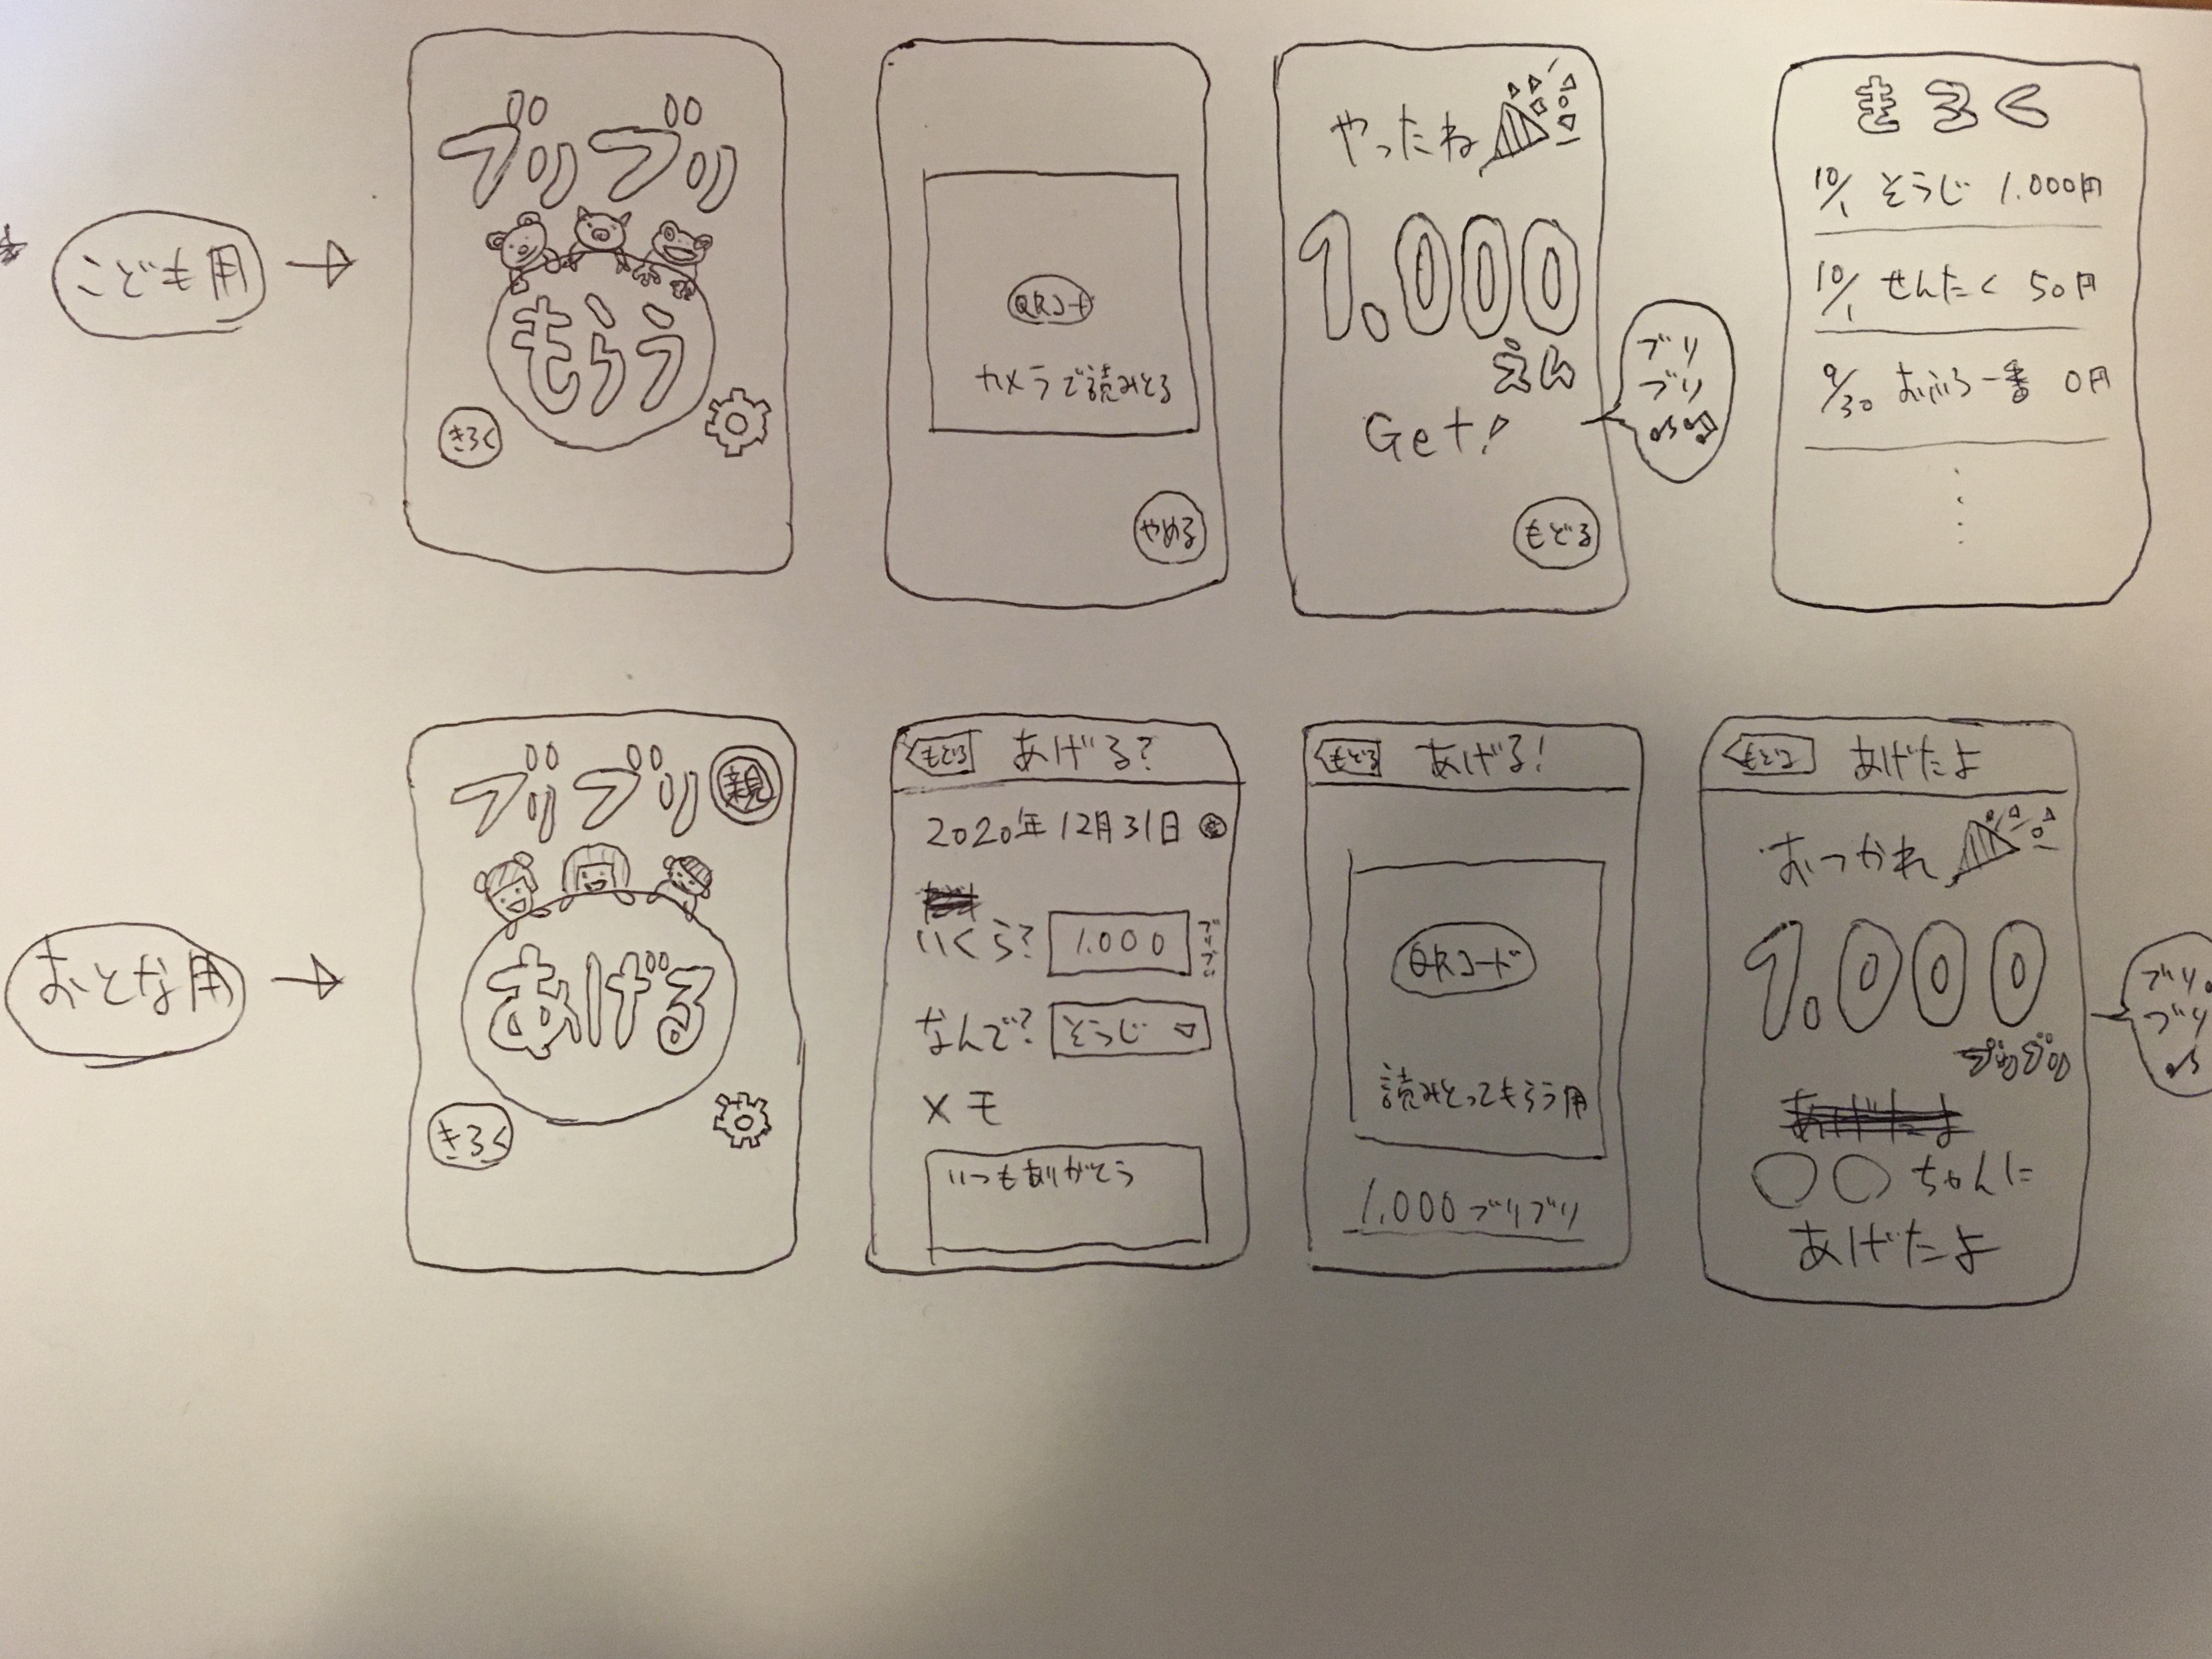 こども用
ブリブリ
もらう
きろく
QRコード
カメラで読みとる
やめる
やったね
1.000
えん
Get!
もどる
ブリ
ブリ
きろく
10/1 そうじ 1.000円
10/1 せんたく 50円
9/30 おふろ一番 0円
おとな用
ブリブリ
親
あげる
きろく
もどる あげる?
2020年12月31日
いくら? 1.000 ブリブリ
なんで? そうじ
メモ
いつもありがとう
もどる あげる!
QRコード
読みとってもらう用
1.000 ブリブリ
もどる あげたよ
おつかれ
1.000
ブリブリ
あげたよ
○○ちゃんに
あげたよ
ブリ
ブリ